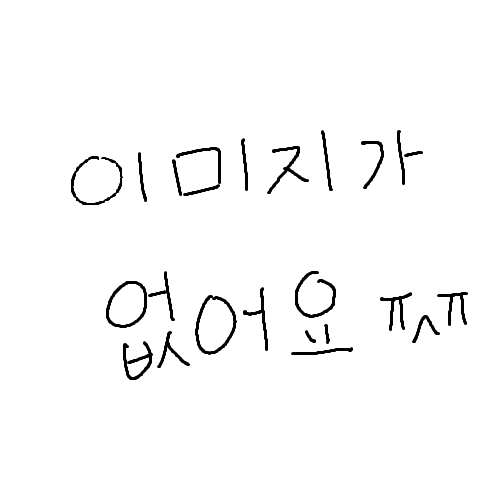 이미지가
없어요 ㅠㅅㅠ